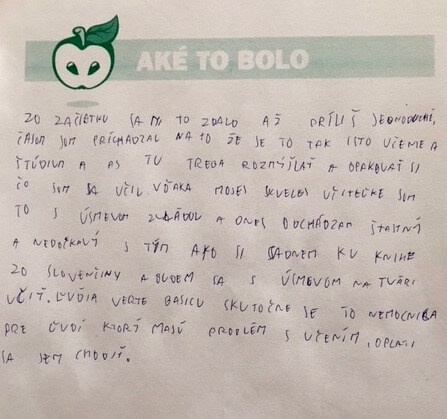 AKÉ TO BOLO
ZO ZAČIATKU SA MI TO ZDALO AŽ PRÍLIŠ JEDNODUCHÉ,
ČASOM SOM PRÍCHADZAL NA TO ŽE SE TO TAK ISTO UČENIE A
ŠTÚDIUM A AS TU TREBA ROZMÝŠĽAŤ A OPAKOVAŤ SI
ČO SOM SA UČIL. VĎAKA MOJEJ SKVELEJ UČITEĽKE SOM
TO S ÚSMEVOM ZVLÁDOL A DNES ODCHÁDZAM ŠŤASTNÝ
A NEDOČKAVÝ S TÝM AKO SI SADNEM KU KNIHE
ZO SLOVENČINY A BUDEM SA S ÚSMEVOM NA TVÁRI
UČIŤ. ĽUDIA VERTE BASICU SKUTOČNE SE TO NEMOCNICA
PRE ĽUDÍ KTORÝ MAJÚ PROBLÉM S UČENÍM, OPLATÍ
SA SEM CHODIŤ.